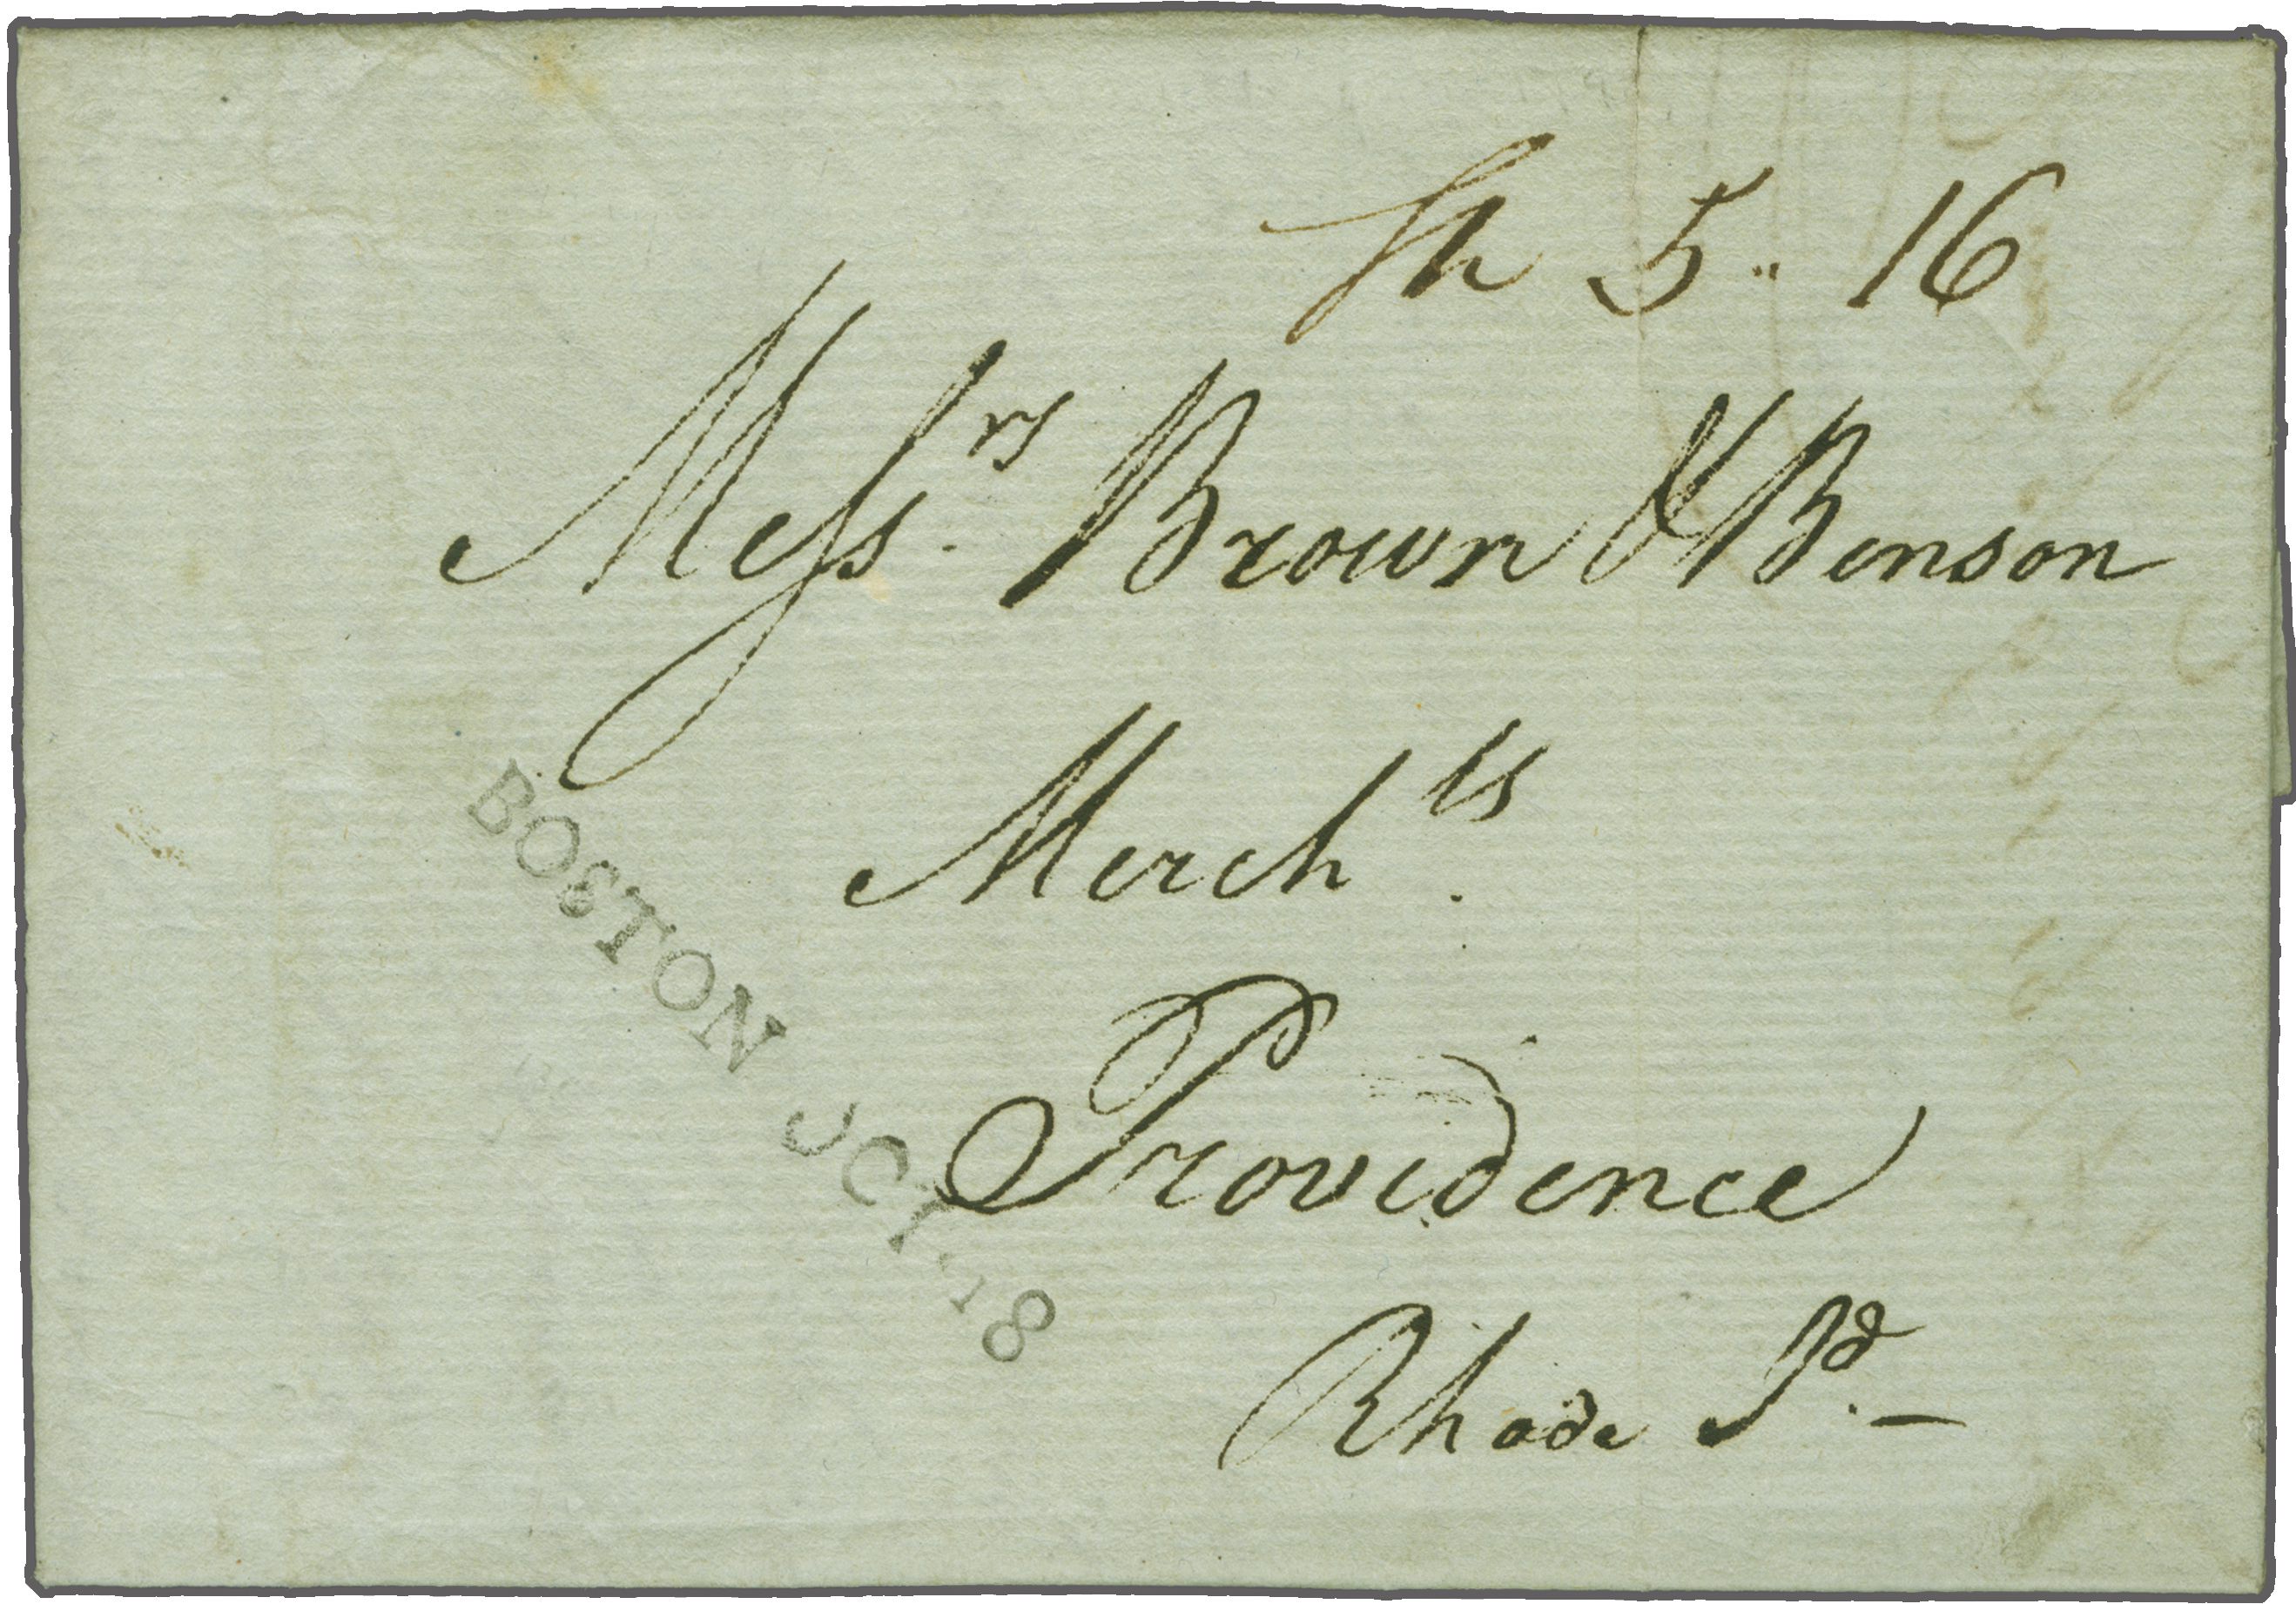 Sh 5 " 16
Messrs. Brown & Benson
Merchts.
BOSTON OCT 18
Providence
Rhode Id. –